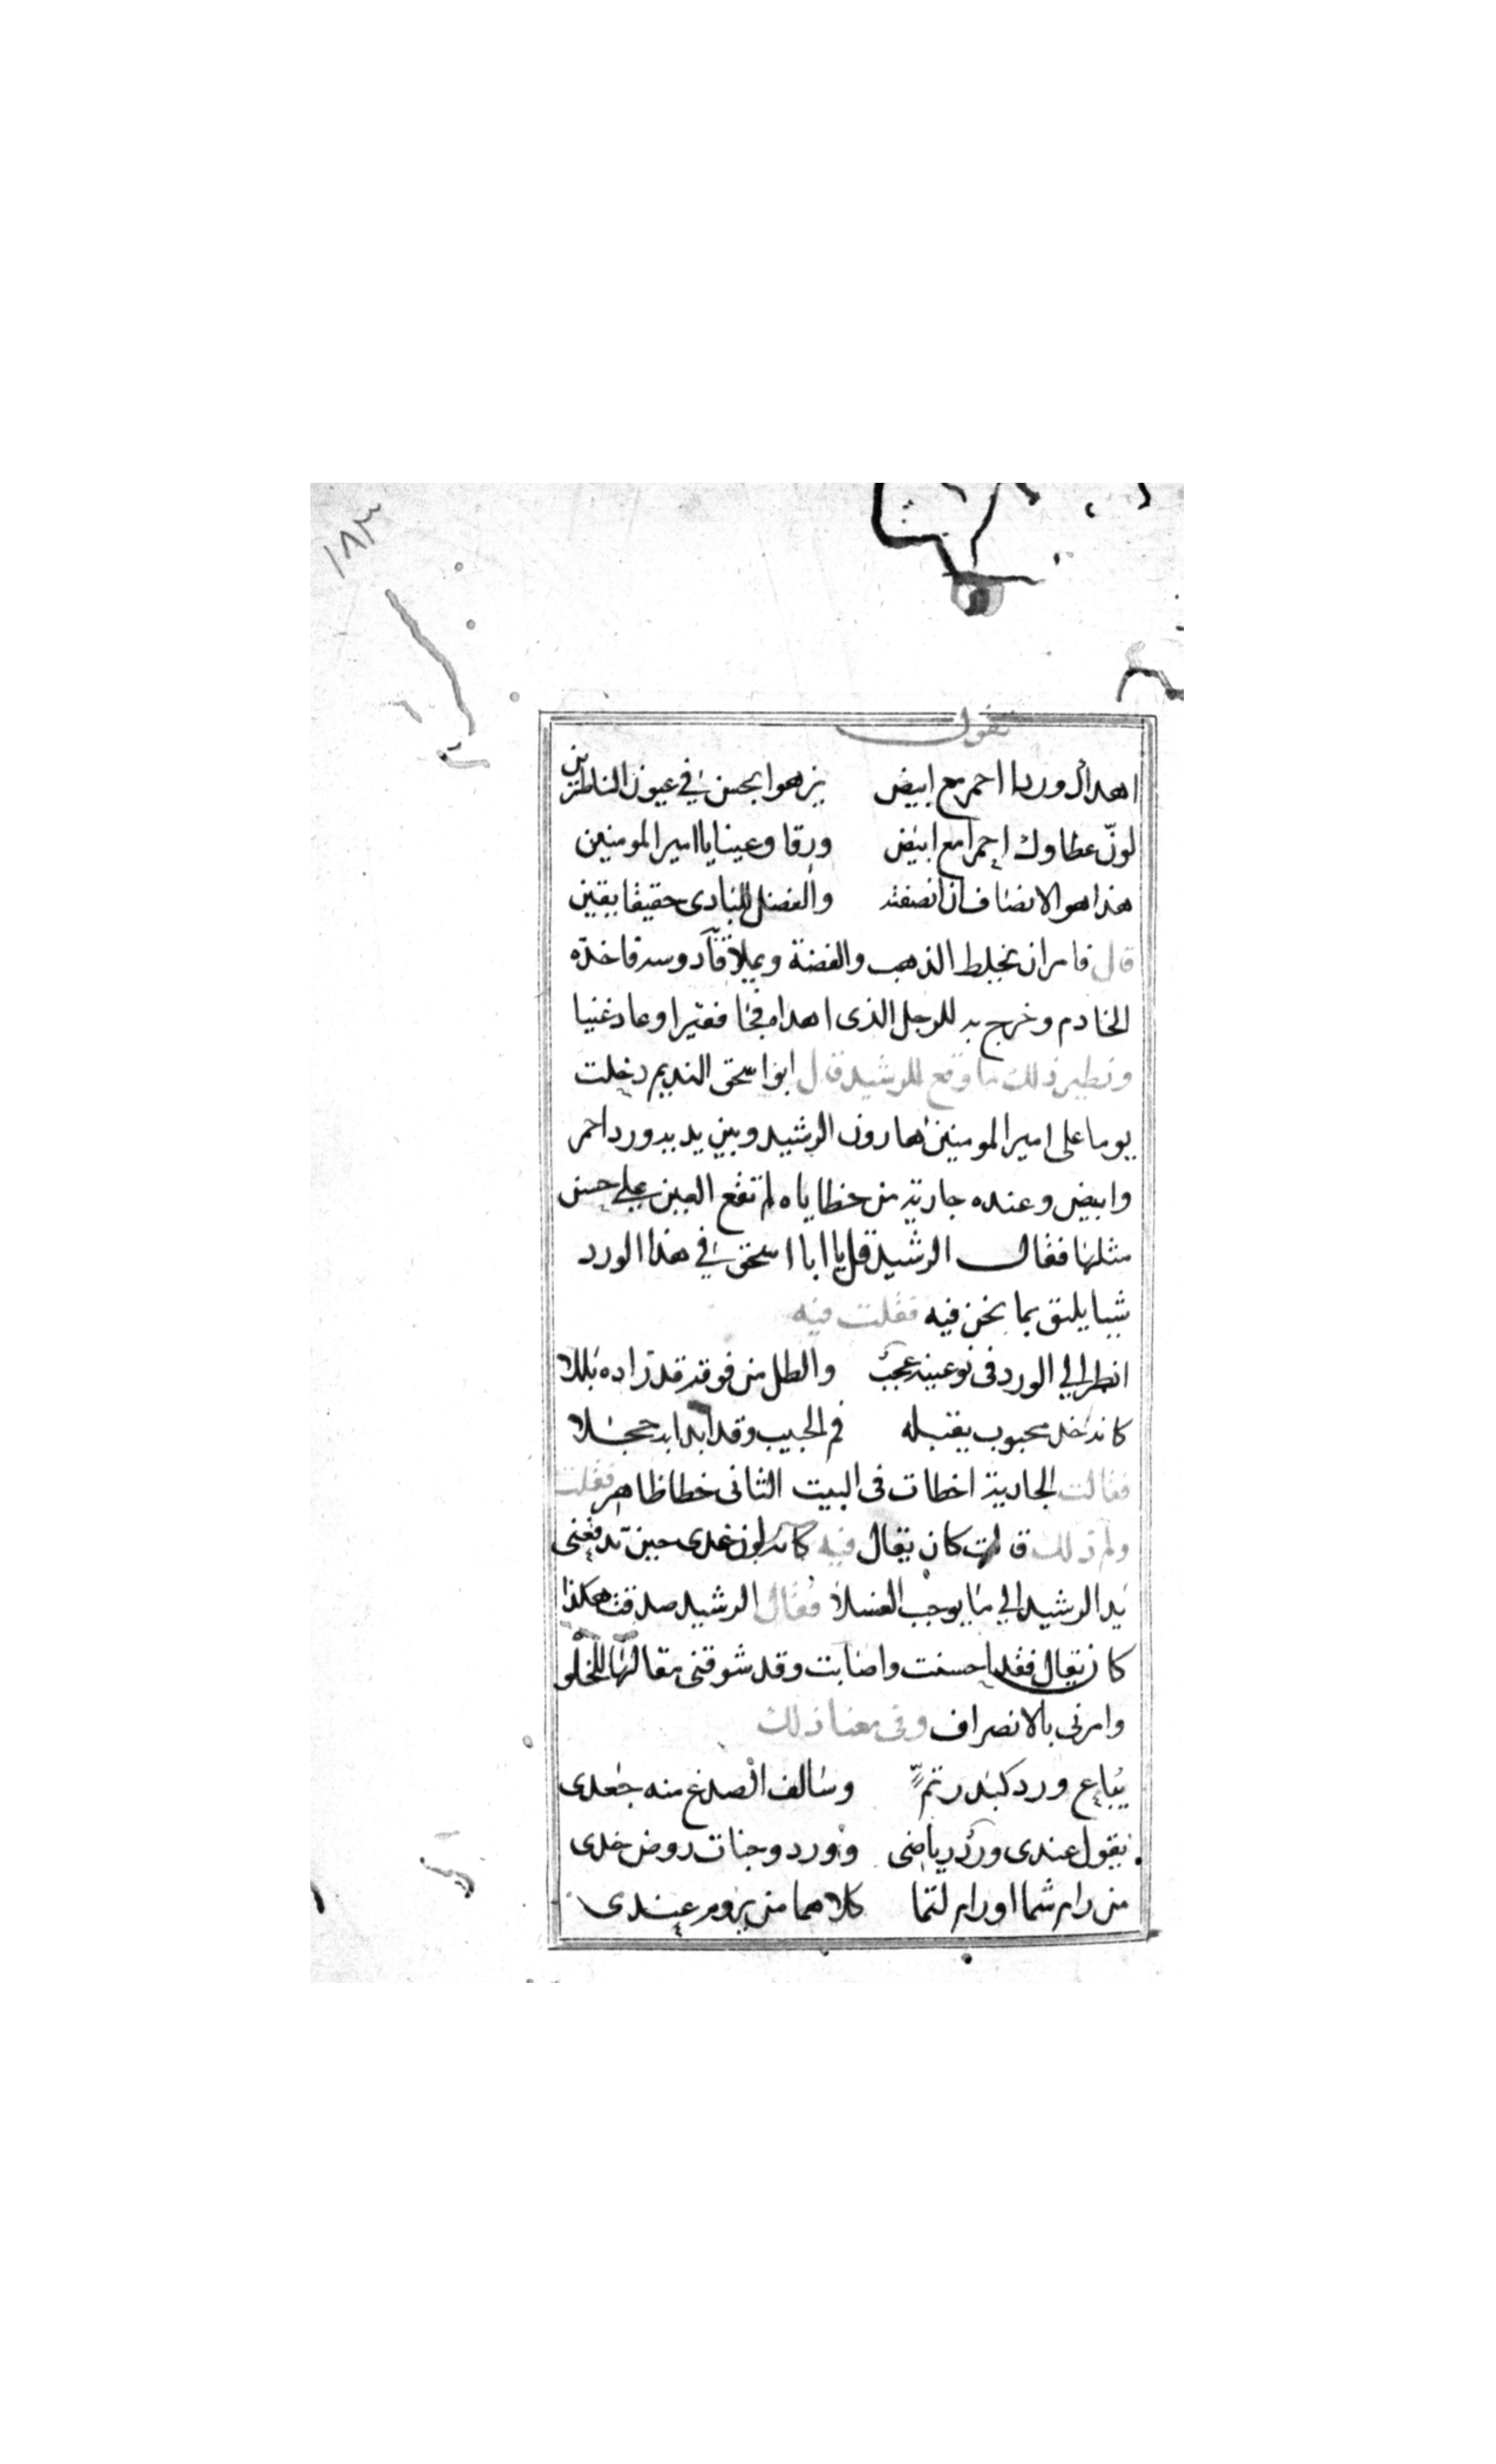 ١٨٣
يقول
اهدا لك وردا احمر مع ابيض يزهوا بحسن في عيون الناظرين
لون عطاوك احمرا مع ابيض ورقا وعينا يا امير المومنين
هذا هو الانصاف ان انصفته والفضل للبادى حقيقا يقين
قال فامر ان يخلط الذهب والفضة ويملا فآد وسرقا خذه
الخادم وخرج به للرجل الذى اهداه فجا فقيرا وعاد غنيا
ونظير ذلك ما وقع للرشيد قال ابوا سحق النديم دخلت
يوما على امير المومنين هارون الرشيد وبين يديه ورد احمر
وابيض وعنده جارية من حظاياه لم تقع العين على حسن
مثلها فقال الرشيد قل يا ابا اسحق في هذا الورد
شيا يليق بما نحن فيه فقلت فيه
انظر الي الورد فى نوعينه عجب والطل من فوقه قد زاده بللا
كانه خد محبوب يقبله فم الحبيب وقد ابدا به خجلا
فقالت الجارية اخطات فى البيت الثانى خطا ظاهر فقلت
ولم ذلك قالت كان يقال فيه كانه لون خدى حين تدفعنى
يد الرشيد الي ما يوجب الغسلا فقال الرشيد صدقت هكذا
كان يقال فقد احسنت واصابت وقد شوقتنى مقالتها للخلو
وامرنى بالانصراف وفى معنا ذلك
يباع ورد كبدر تم وسالف الصدغ منه جعدى
يقول عندى ورد رياضى وورد وجنات روض خدى
من رام شما او رام لثما كلاهما من يروم عندى